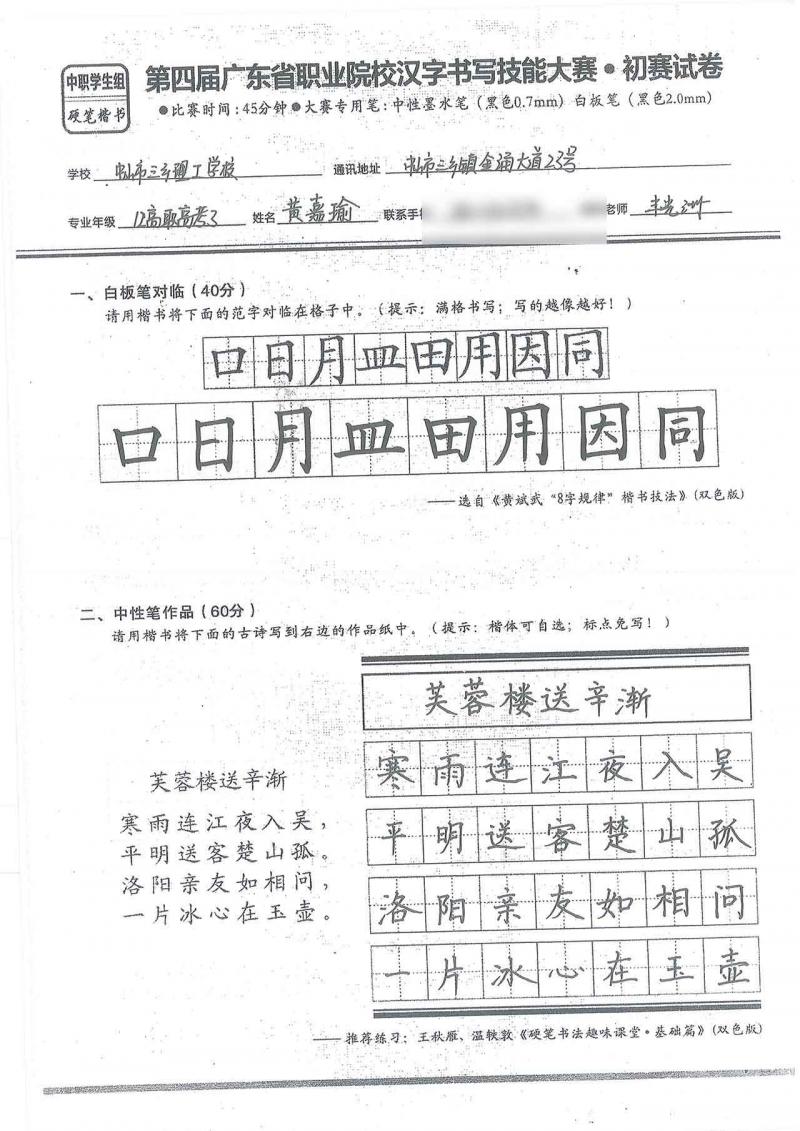 中职学生组
硬笔楷书
第四届广东省职业院校汉字书写技能大赛•初赛试卷
●比赛时间:45分钟●大赛专用笔:中性墨水笔(黑色0.7mm)白板笔(黑色2.0mm)
学校 中山市三乡理工学校 通讯地址 中山市三乡镇金涌大道23号
专业年级 12高职高考3 姓名 黄嘉瑜 联系手 老师
一、白板笔对临(40分)
请用楷书将下面的范字对临在格子中。(提示:满格书写;写的越像越好!)
口日月皿田用因同
口日月皿田用因同
——选自《黄斌武“8字规律”楷书技法》(双色版)
二、中性笔作品(60分)
请用楷书将下面的古诗写到右边的作品纸中。(提示:楷体可自选;标点免写!)
芙蓉楼送辛渐
寒雨连江夜入吴,
平明送客楚山孤。
洛阳亲友如相问,
一片冰心在玉壶。
芙蓉楼送辛渐
寒雨连江夜入吴
平明送客楚山孤
洛阳亲友如相问
一片冰心在玉壶
——推荐练习:王秋雁、温轶敦《硬笔书法趣味课堂•基础篇》(双色版)